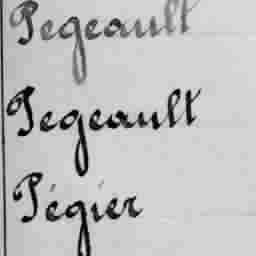 Pegeault
Pegeault
Pégier